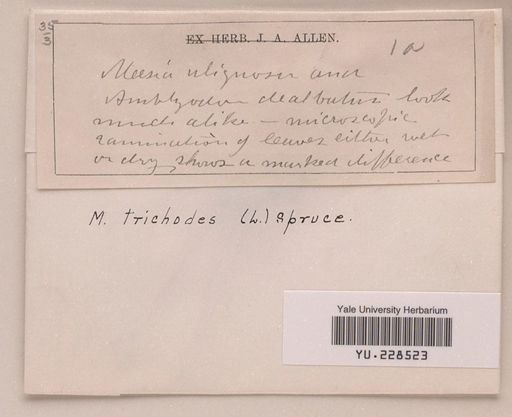 EX HERB. J. A. ALLEN.
Meesia uliginosa and
Amblyodon dealbatus look
much alike - microscopic
examination of leaves either wet
or dry shows a marked difference
M. trichodes (L.) Spruce.
Yale University Herbarium
YU.228523